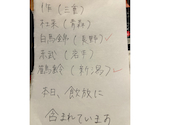 作(三重)
杜來(青森)
白馬錦(長野)✓
来武(岩手)
鶴齢(新潟)✓
本日、飲放に
含まれています